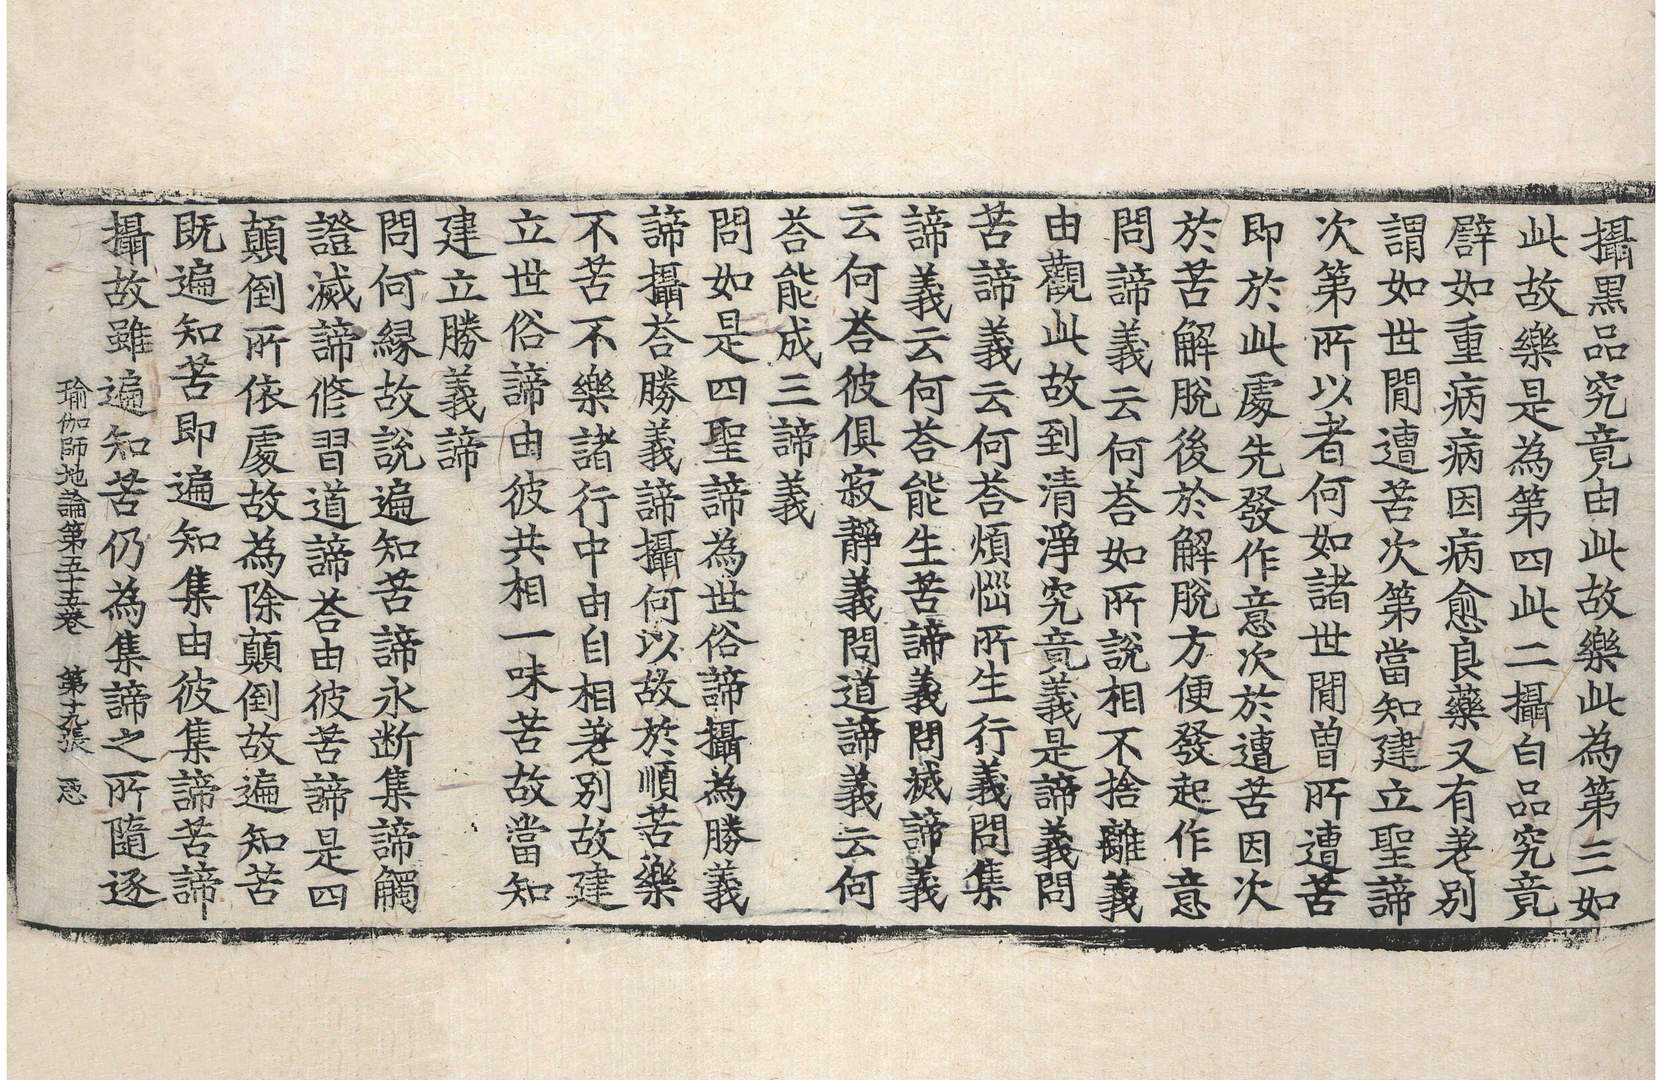 攝黑品究竟由此故樂此為第三如
此故樂是為第四此二攝白品究竟
譬如重病病因病愈良藥又有差別
謂如世間遭苦次第當知建立聖諦
次第所以者何如諸世間曾所遭苦
即於此處先發作意次於遭苦因次
於苦解脫後於解脫方便發起作意
問諦義云何荅如所說相不捨離義
由觀此故到清淨究竟義是諦義問
苦諦義云何荅煩惱所生行義問集
諦義云何荅能生苦諦義問滅諦義
云何荅彼俱寂靜義問道諦義云何
荅能成三諦義
問如是四聖諦為世俗諦攝為勝義
諦攝荅勝義諦攝何以故於順苦樂
不苦不樂諸行中由自相差別故建
立世俗諦由彼共相一味苦故當知
建立勝義諦
問何縁故說遍知苦諦永断集諦觸
證滅諦修習道諦荅由彼苦諦是四
顛倒所依處故為除顛倒故遍知苦
既遍知苦即遍知集由彼集諦苦諦
攝故雖遍知苦仍為集諦之所隨逐
瑜伽師地論第五十五卷 第十九張 惑